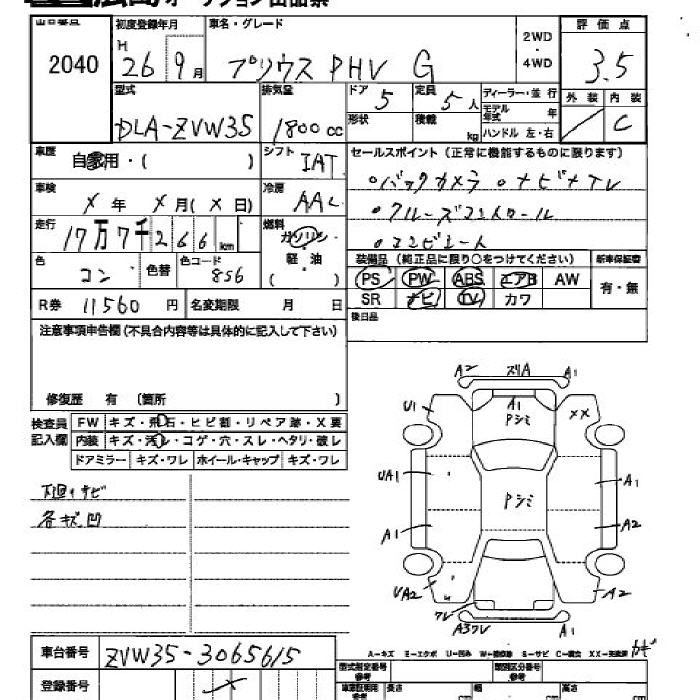 広島オークション出品票
出品番号 初度登録年月 車名・グレード 2WD・4WD 評価点
2040 H 26 9月 プリウスPHV G 3.5
型式 排気量 ドア 5 定員 5人 ディーラー・並行 外装 内装
DLA-ZVW35 1800cc 形状 積載 kg モデル年式 年 C
ハンドル 左・右
車歴 自家用・( ) シフト IAT セールスポイント(正常に機能するものに限ります)
車検 X年 X月(X日) 冷房 AAC ・バックカメラ ・ナビ+TV
走行 17万7千266km 燃料 ガソリン ・クルーズコントロール
軽油 ( )
色 コン 色替 色コード 8S6 装備品(純正品に限り○をつけてください) 新車保証書
PS PW ABS エアB AW 有・無
R券 11560円 名変期限 月 日 SR ナビ TV カワ
後日品
注意事項申告欄(不具合内容等は具体的に記入して下さい)
修復歴 有 〔箇所 〕
検査員記入欄 FW キズ・飛石・ヒビ割・リペア跡・X要
内装 キズ・汚レ・コゲ・穴・スレ・ヘタリ・破レ
ドアミラー キズ・ワレ ホイール・キャップ キズ・ワレ
下廻りサビ
各キズ凹
A2 スリA A1
U1 A1 Pシミ XX
UA1 Pシミ A1
A1 A2
UA2 A2
ワレ A3ワレ A1
A-キズ E-エクボ U-凹み W-補修跡 S-サビ C-腐食 XX-交換済
車台番号 ZVW35-3065615
登録番号
型式指定番号 参考 類別区分番号 参考
長さ cm 幅 cm 高さ cm